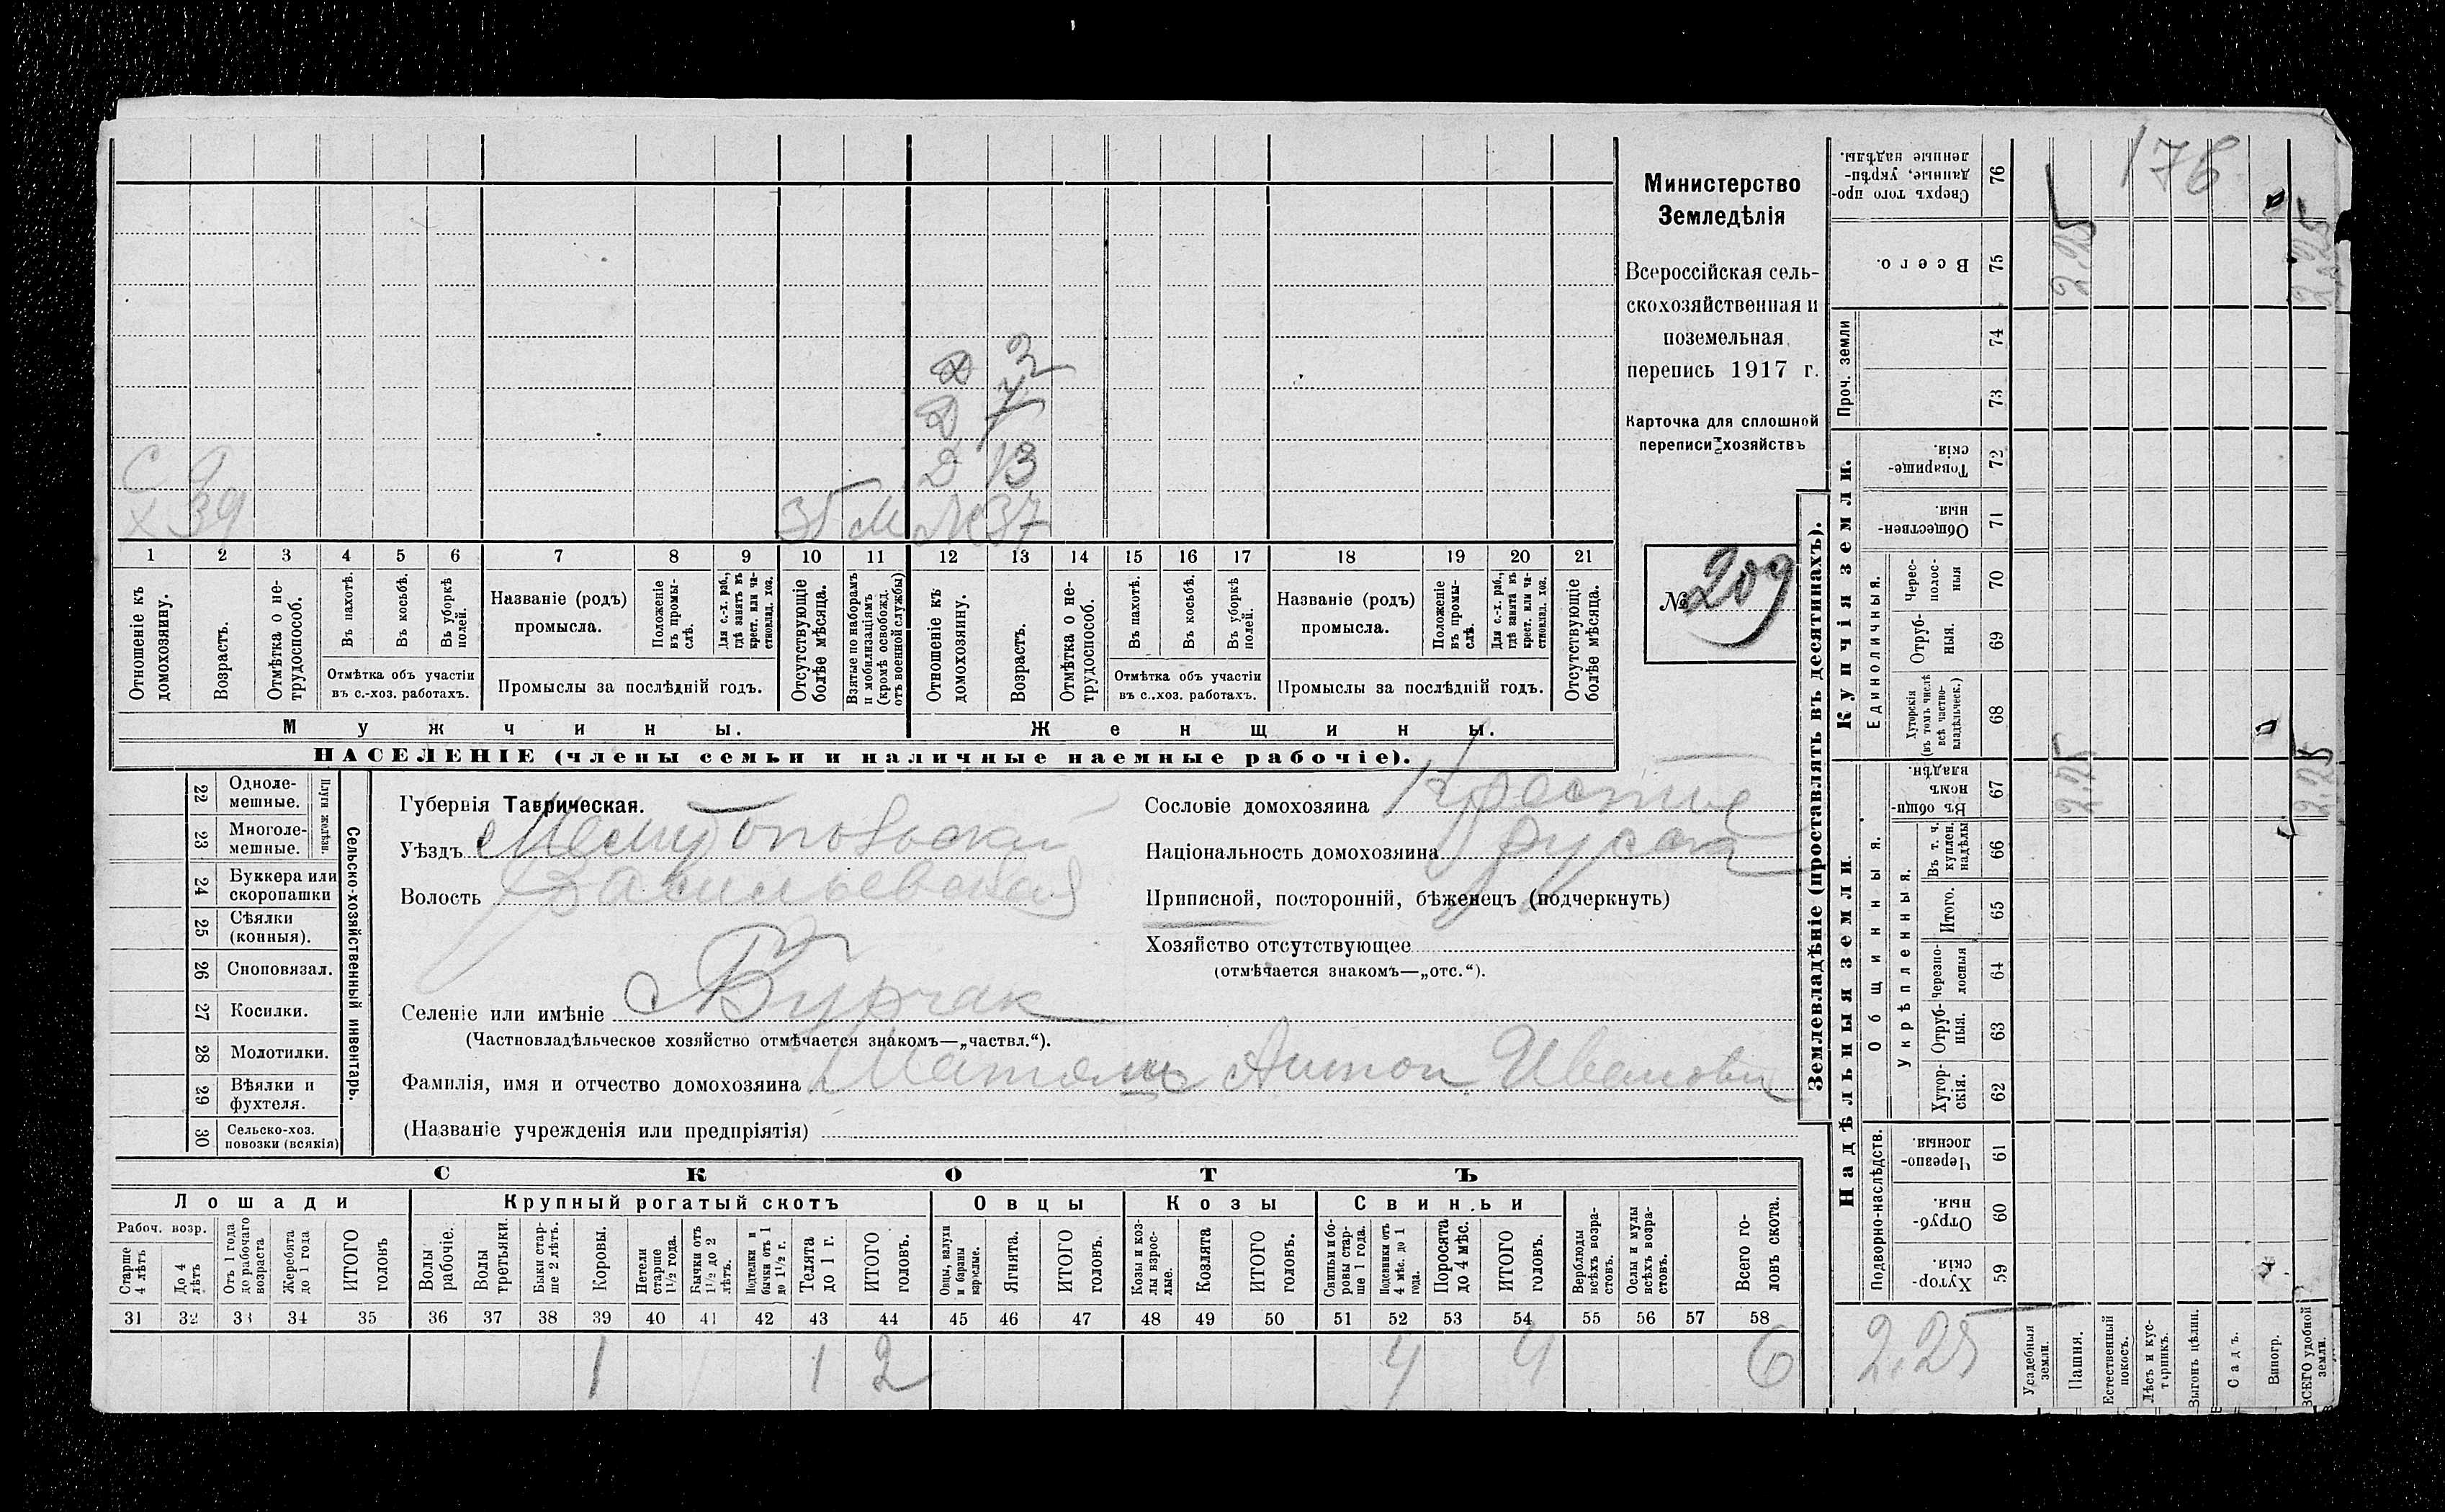 176
Министерство
Земледѣлія
Всероссійская сель-
скохозяйственная и
поземельная
перепись 1917 г.
Карточка для сплошной
переписи хозяйствъ
№ 209
Д 2
Д 7
Д 13
С 9
Х 39
М
Ж 37
1 2 3 4 5 6 7 8 9 10 11 12 13 14 15 16 17 18 19 20 21
Отношеніе къ домохозяину.
Возрастъ.
Отмѣтка о не-трудоспособ.
Въ пахотѣ.
Въ косьбѣ.
Въ уборкѣ полей.
Отмѣтка объ участіи
въ с.-хоз. работахъ.
Названіе (родъ)
промысла.
Положеніе въ промы-слѣ.
Для с.-х. раб., гдѣ занятъ въ крест. или ча-стновлад. хоз.
Промыслы за послѣдній годъ.
Отсутствующіе болѣе мѣсяца.
Взятые по наборамъ и мобилизаціямъ (кромѣ освобожд. отъ военной службы)
Отношеніе къ домохозяину.
Возрастъ.
Отмѣтка о не-трудоспособ.
Въ пахотѣ.
Въ косьбѣ.
Въ уборкѣ полей.
Отмѣтка объ участіи
въ с.-хоз. работахъ.
Названіе (родъ)
промысла.
Положеніе въ промы-слѣ.
Для с.-х. раб., гдѣ занята въ крест. или ча-стновлад. хоз.
Промыслы за послѣдній годъ.
Отсутствующіе болѣе мѣсяца.
Мужчины.
Женщины.
НАСЕЛЕНІЕ (члены семьи и наличные наемные рабочіе).
Сельско-хозяйственный инвентарь.
Плуги желѣзн.
22 Одноле-мешные.
23 Многоле-мешные.
24 Буккера или скоропашки
25 Сѣялки (конныя).
26 Сноповязал.
27 Косилки.
28 Молотилки.
29 Вѣялки и фухтеля.
30 Сельско-хоз. повозки (всякія)
Губернія Таврическая.
Уѣздъ Мелитопольскій
Волость Васильевская
Селеніе или имѣніе Бурчак
(Частновладѣльческое хозяйство отмѣчается знакомъ—„частвл.“).
Фамилія, имя и отчество домохозяина Антон Иванович
(Названіе учрежденія или предпріятія)
Сословіе домохозяина
Національность домохозяина
Приписной, посторонній, бѣженецъ (подчеркнуть)
Хозяйство отсутствующее
(отмѣчается знакомъ—„отс.“).
СКОТЪ
Лошади
Крупный рогатый скотъ
Овцы
Козы
Свиньи
Рабоч. возр.
Старше 4 лѣтъ
До 4 лѣтъ
Отъ 1 года до рабочаго возраста
Жеребята до 1 года
ИТОГО головъ
Волы рабочіе.
Волы третьяки.
Быки стар-ше 2 лѣтъ.
Коровы.
Нетели старше 1½ года.
Бычки отъ 1½ до 2 лѣтъ.
Подтелки и бычки отъ 1 до 1½ г.
Телята до 1 г.
ИТОГО головъ.
Овцы, валухи и бараны взрослые.
Ягнята.
ИТОГО головъ.
Козы и коз-лы взрос-лые.
Козлята
ИТОГО головъ.
Свиньи и бо-ровы стар-ше 1 года.
Подсвинки отъ 4 мѣс. до 1 года.
Поросята до 4 мѣс.
ИТОГО головъ.
Верблюды всѣхъ возра-стовъ.
Ослы и мулы всѣхъ возра-стовъ.
Всего го-ловъ скота.
31 32 33 34 35 36 37 38 39 40 41 42 43 44 45 46 47 48 49 50 51 52 53 54 55 56 57 58
1 1 2 4 4 6
Землевладѣніе (проставлять въ десятинахъ).
Надѣльныя земли.
Купчія земли.
Проч. земли
Подворно-наслѣдств.
Общинныя.
Укрѣпленныя.
Единоличныя.
59 Хутор-скія.
60 Отруб-ныя.
61 Черезпо-лосныя.
62 Хутор-скія.
63 Отруб-ныя.
64 Черезпо-лосныя
65 Итого.
66 Въ т. ч. куплен. надѣлы
67 Въ общи-номъ владѣн.
68 Хуторскія (въ томъ числѣ всѣ частно-владѣльческ.)
69 Отруб-ныя.
70 Черес-полос-ныя
71 Обществен-ныя.
72 Товарище-скія.
73
74
75 Всего.
76 Сверхъ того про-данные, укрѣп-ленные надѣлы.
Усадебныя земли.
Пашня.
Естественный покосъ.
Лѣсъ и кус-тарникъ.
Выгонъ цѣлин.
Садъ.
Виногр.
ВСЕГО удобной земли.
2.25
2.25
2.25
2.25
2.25